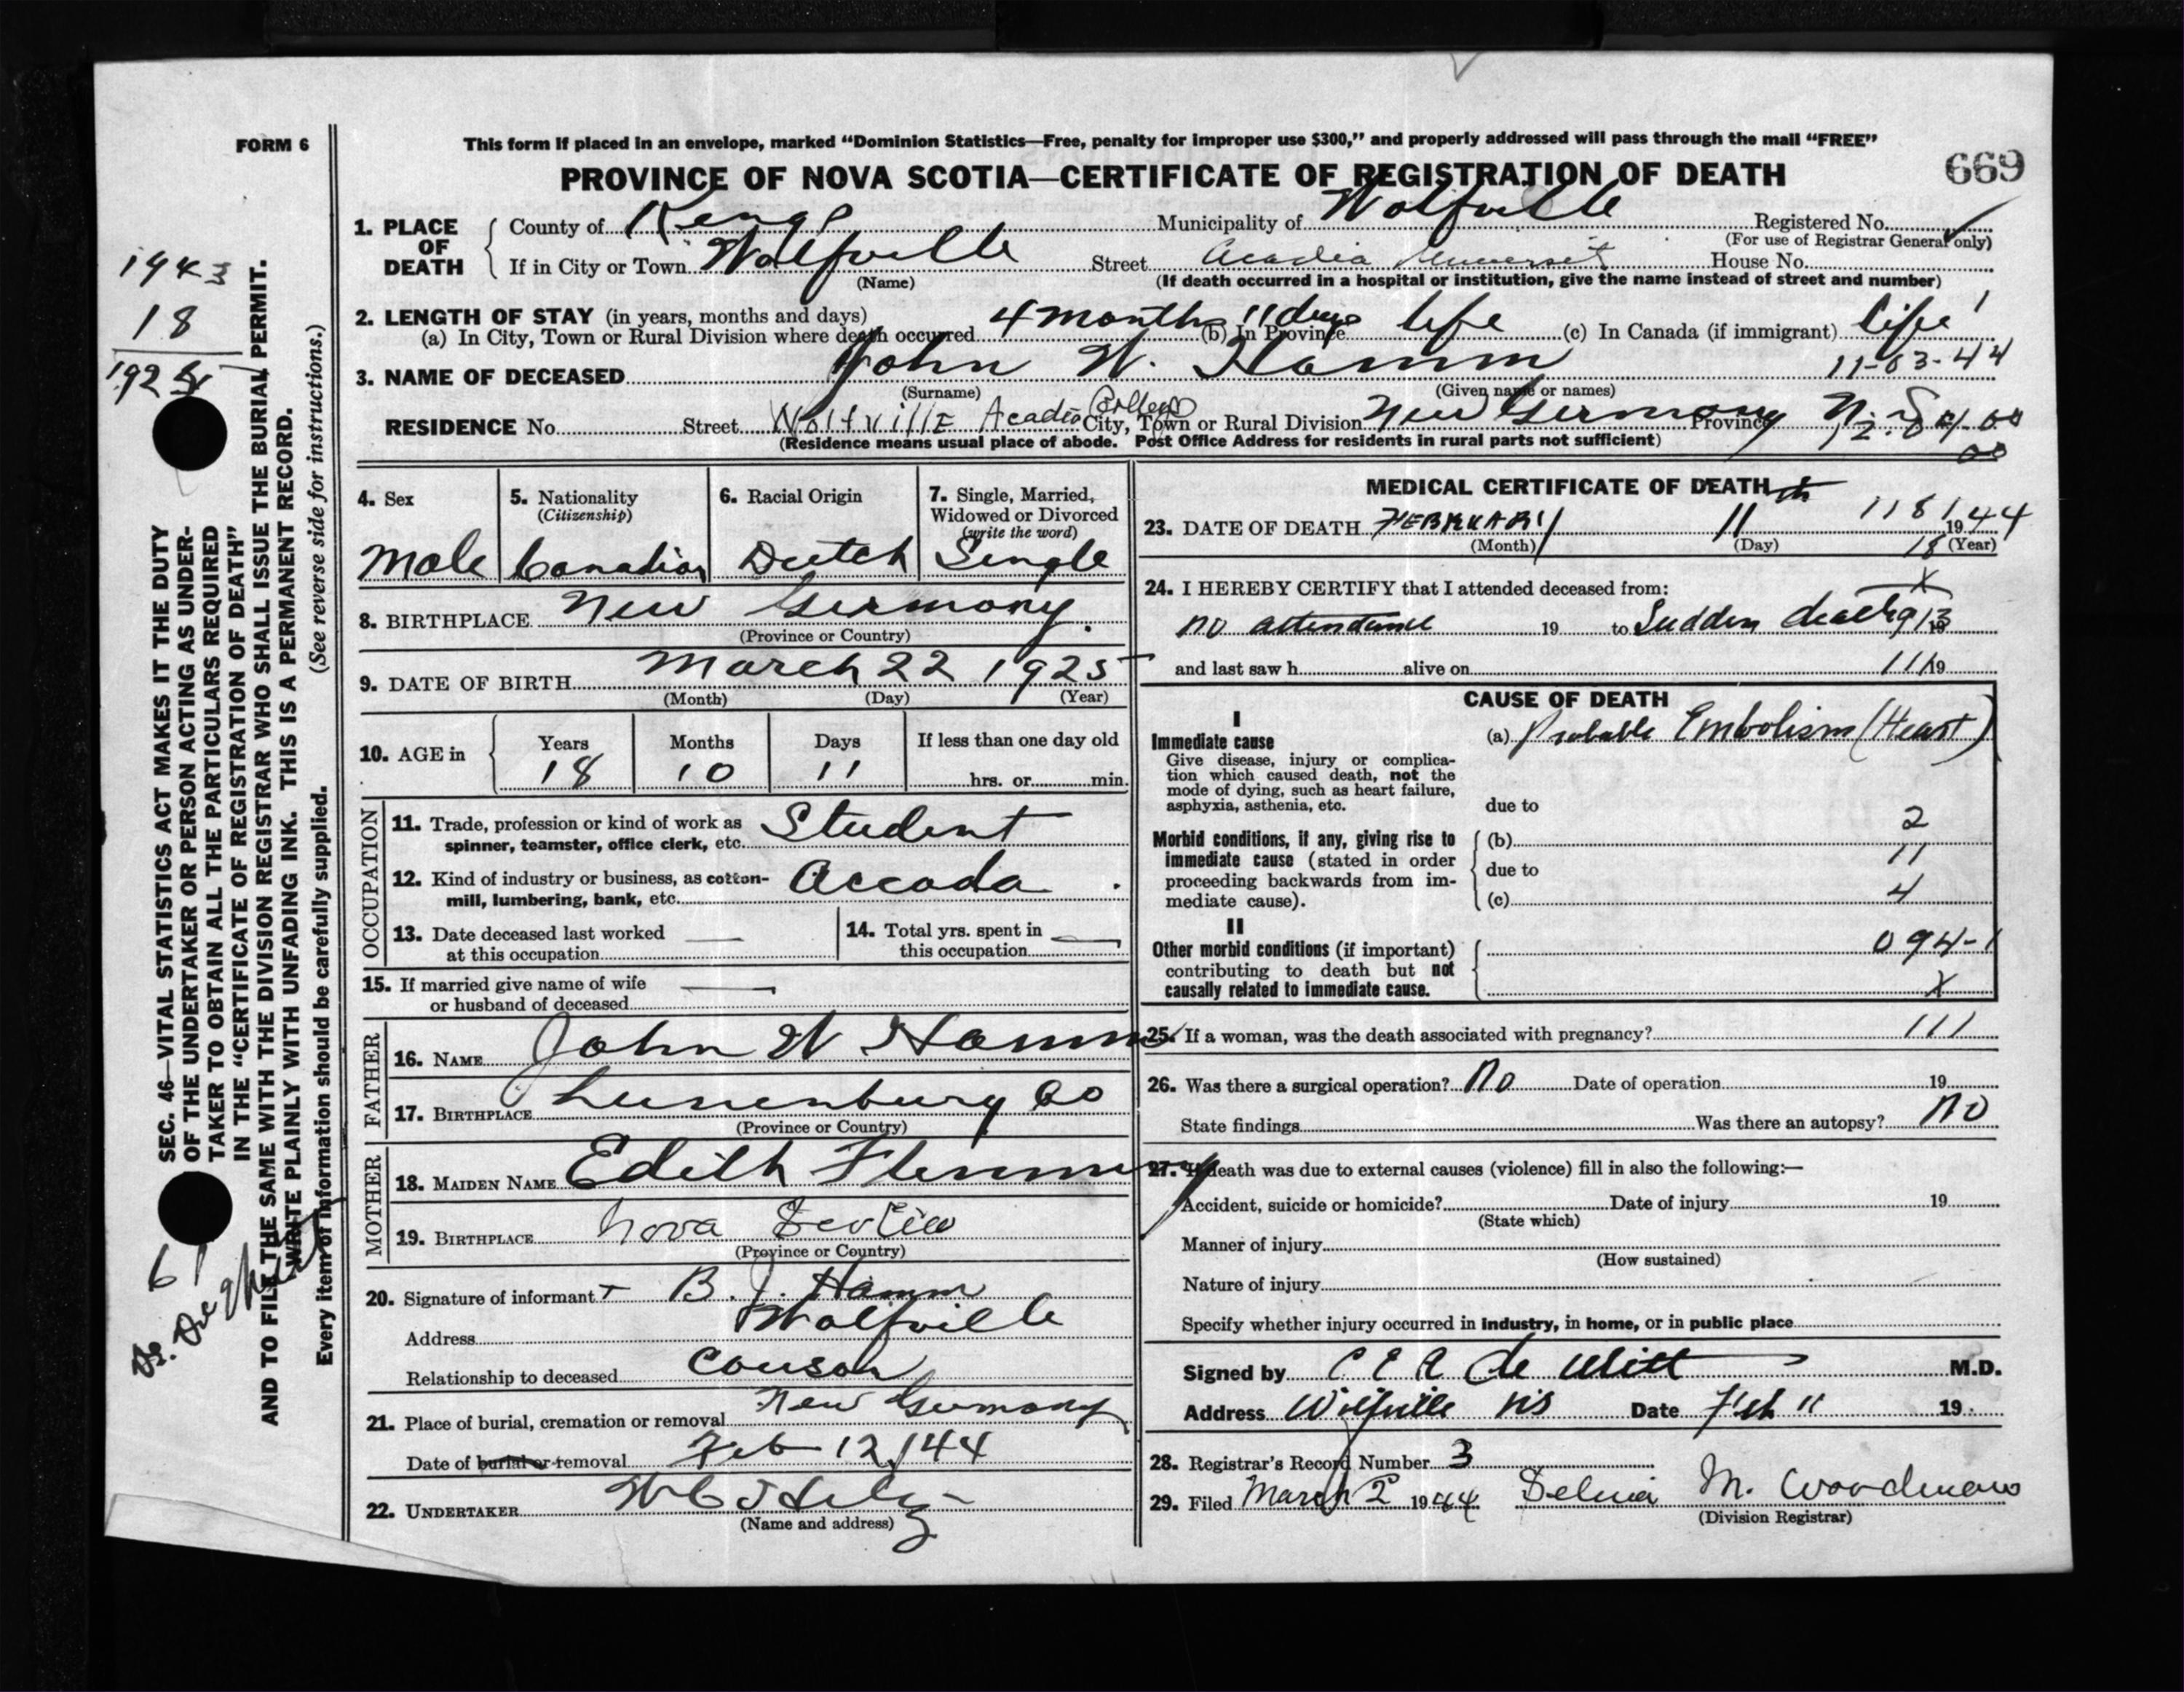 FORM 6
This form if placed in an envelope, marked “Dominion Statistics—Free, penalty for improper use $300,” and properly addressed will pass through the mail “FREE”
PROVINCE OF NOVA SCOTIA—CERTIFICATE OF REGISTRATION OF DEATH
669
1. PLACE OF DEATH
County of Kings Municipality of Wolfville Registered No.
(For use of Registrar General only)
If in City or Town Wolfville Street Acadia University House No.
(Name) (If death occurred in a hospital or institution, give the name instead of street and number)
2. LENGTH OF STAY (in years, months and days)
(a) In City, Town or Rural Division where death occurred 4 months 11 days (b) In Province life (c) In Canada (if immigrant) life
3. NAME OF DECEASED John W. Hamm 11-03-44
(Surname) (Given name or names)
RESIDENCE No. Street Wolfville Acadia College City, Town or Rural Division New Germany Province N.S.
(Residence means usual place of abode. Post Office Address for residents in rural parts not sufficient)
1943
18
192
SEC. 46—VITAL STATISTICS ACT MAKES IT THE DUTY
OF THE UNDERTAKER OR PERSON ACTING AS UNDER-
TAKER TO OBTAIN ALL THE PARTICULARS REQUIRED
IN THE “CERTIFICATE OF REGISTRATION OF DEATH”
AND TO FILE THE SAME WITH THE DIVISION REGISTRAR WHO SHALL ISSUE THE BURIAL PERMIT.
WRITE PLAINLY WITH UNFADING INK. THIS IS A PERMANENT RECORD.
Every item of information should be carefully supplied. (See reverse side for instructions.)
4. Sex
Male
5. Nationality
(Citizenship)
Canadian
6. Racial Origin
Dutch
7. Single, Married,
Widowed or Divorced
(write the word)
Single
8. BIRTHPLACE New Germany.
(Province or Country)
9. DATE OF BIRTH March 22 1925
(Month) (Day) (Year)
10. AGE in
Years Months Days If less than one day old
18 10 11 hrs. or min.
OCCUPATION
11. Trade, profession or kind of work as
spinner, teamster, office clerk, etc. Student
12. Kind of industry or business, as cotton-
mill, lumbering, bank, etc. Accada.
13. Date deceased last worked
at this occupation —
14. Total yrs. spent in
this occupation —
15. If married give name of wife
or husband of deceased —
FATHER
16. NAME John W Hamm
17. BIRTHPLACE Lunenburg Co
(Province or Country)
MOTHER
18. MAIDEN NAME Edith Flemming
19. BIRTHPLACE Nova Scotia
(Province or Country)
20. Signature of informant B. J. Hamm
Address Wolfville
Relationship to deceased Couson
21. Place of burial, cremation or removal New Germany
Date of burial or removal Feb 12/44
22. UNDERTAKER
(Name and address)
MEDICAL CERTIFICATE OF DEATH
23. DATE OF DEATH FEBRUARY 11th 1944
(Month) (Day) (Year)
118
18
24. I HEREBY CERTIFY that I attended deceased from:
no attendance 19 to Sudden death 19
and last saw h alive on 19
CAUSE OF DEATH
I
Immediate cause
Give disease, injury or complica-
tion which caused death, not the
mode of dying, such as heart failure,
asphyxia, asthenia, etc.
(a) Probable Embolism (Heart)
due to
2
Morbid conditions, if any, giving rise to
immediate cause (stated in order
proceeding backwards from im-
mediate cause).
(b)
11
due to
(c) 4
II
Other morbid conditions (if important)
contributing to death but not
causally related to immediate cause.
094-1
X
25. If a woman, was the death associated with pregnancy? 111
26. Was there a surgical operation? No Date of operation 19
State findings Was there an autopsy? No
27. If death was due to external causes (violence) fill in also the following:—
Accident, suicide or homicide? Date of injury 19
(State which)
Manner of injury
(How sustained)
Nature of injury
Specify whether injury occurred in industry, in home, or in public place
Signed by C E A de Witt M.D.
Address Wolfville NS Date Feb 11 19
28. Registrar's Record Number 3
29. Filed March 2 1944 M. Woodman
(Division Registrar)